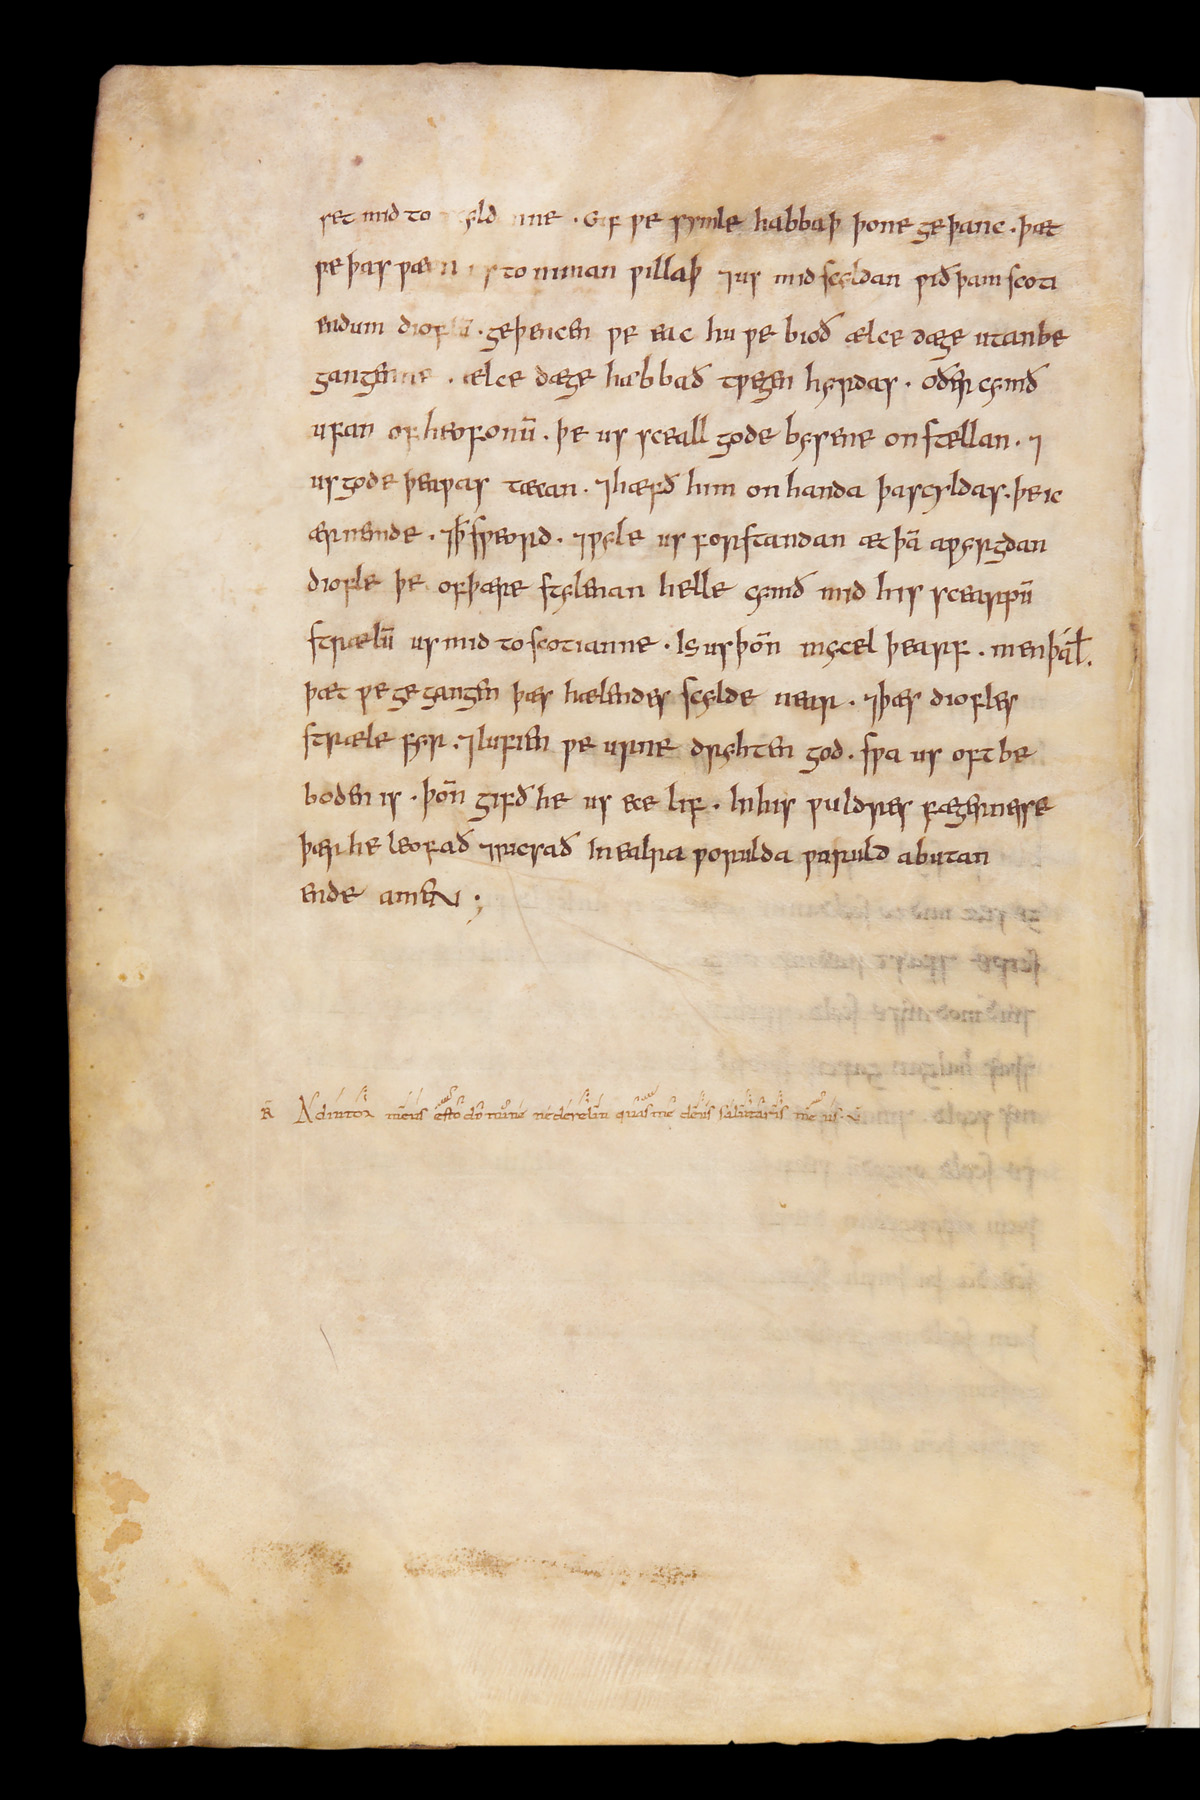 set mid to scyldanne . Gif ƿe symle habbaþ þone geþanc . þæt
ƿe þas ƿæpn us to niman ƿillaþ ⁊us mid scyldan ƿið þam scoti
endum dioflū . geþencen ƿe eac hu ƿe bioð ælce dæge utan be
gangenne . ælce dæge habbað tƿegen hyrdas . oðer cymð
ufan of heofonū . þe us sceall gode bysene onstellan . ⁊
us gode þeaƿas tæcan . ⁊hæfð him on handa þa scyldas . þe ic
ær nemde . ⁊ꝥ sƿeord . ⁊ƿyle us forstandan æt þā aƿyrgdan
diofle þe of þære stylenan helle cymð mid his scearpū
strælū us mid to scotianne . Is us þōn mycel þearf . men þa ł .
þæt ƿe gegangen þæs hælendes scylde near . ⁊þæs diofles
stræle fyr . ⁊lufien ƿe urne dryhten god . sƿa us oft be
boden is . þōn gifð he us ece lif . In his ƿuldres fægernesse
þær he leofað ⁊ricsað In ealra ƿorulda ƿeruld abutan
ende amen ;
R̄ Adiutor meus esto domine ne derelin quas me deus salutaris meus